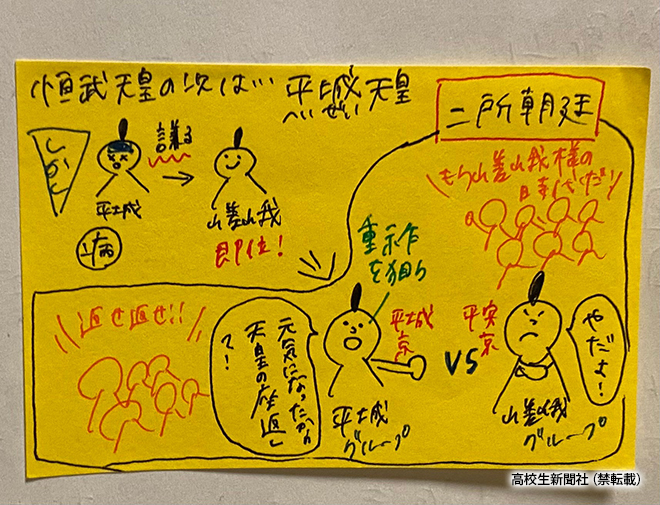 恒武天皇の次は… 平城天皇
へいぜい
二所朝廷
しかし
譲る
平城
病
嵯峨
即位!
もう嵯峨様の
時代だ!
重祚
を狙う
返せ返せ!!
元気になったから
天皇の座返し
て!
平城
京
VS
平安
京
やだよ!
平城
グループ
嵯峨
グループ
高校生新聞社(禁転載)